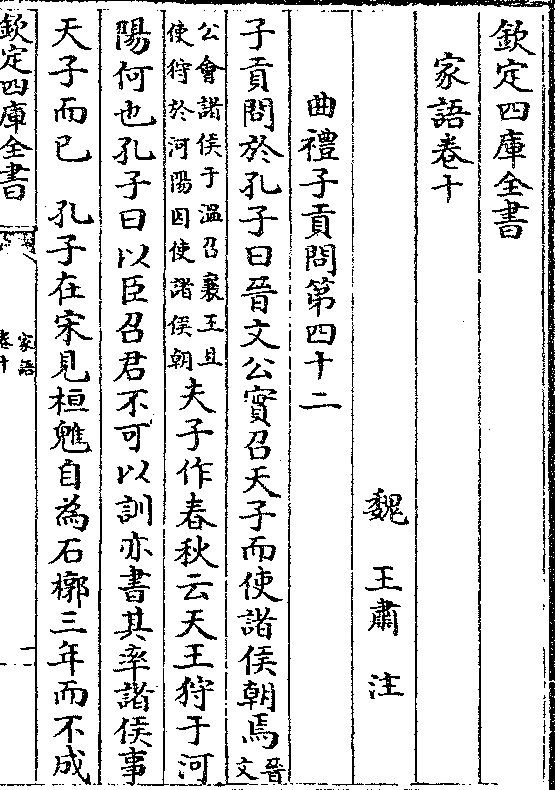 欽定四庫全書
家語卷十
魏 王肅 注
曲禮子貢問第四十二
子貢問於孔子曰晉文公實召天子而使諸侯朝焉晉文
公會諸侯于溫召襄王且
使狩於河陽因使諸侯朝
夫子作春秋云天王狩于河
陽何也孔子曰以臣召君不可以訓亦書其率諸侯事
天子而已 孔子在宋見桓魋自為石槨三年而不成
欽定四庫全書
家語
卷十
一